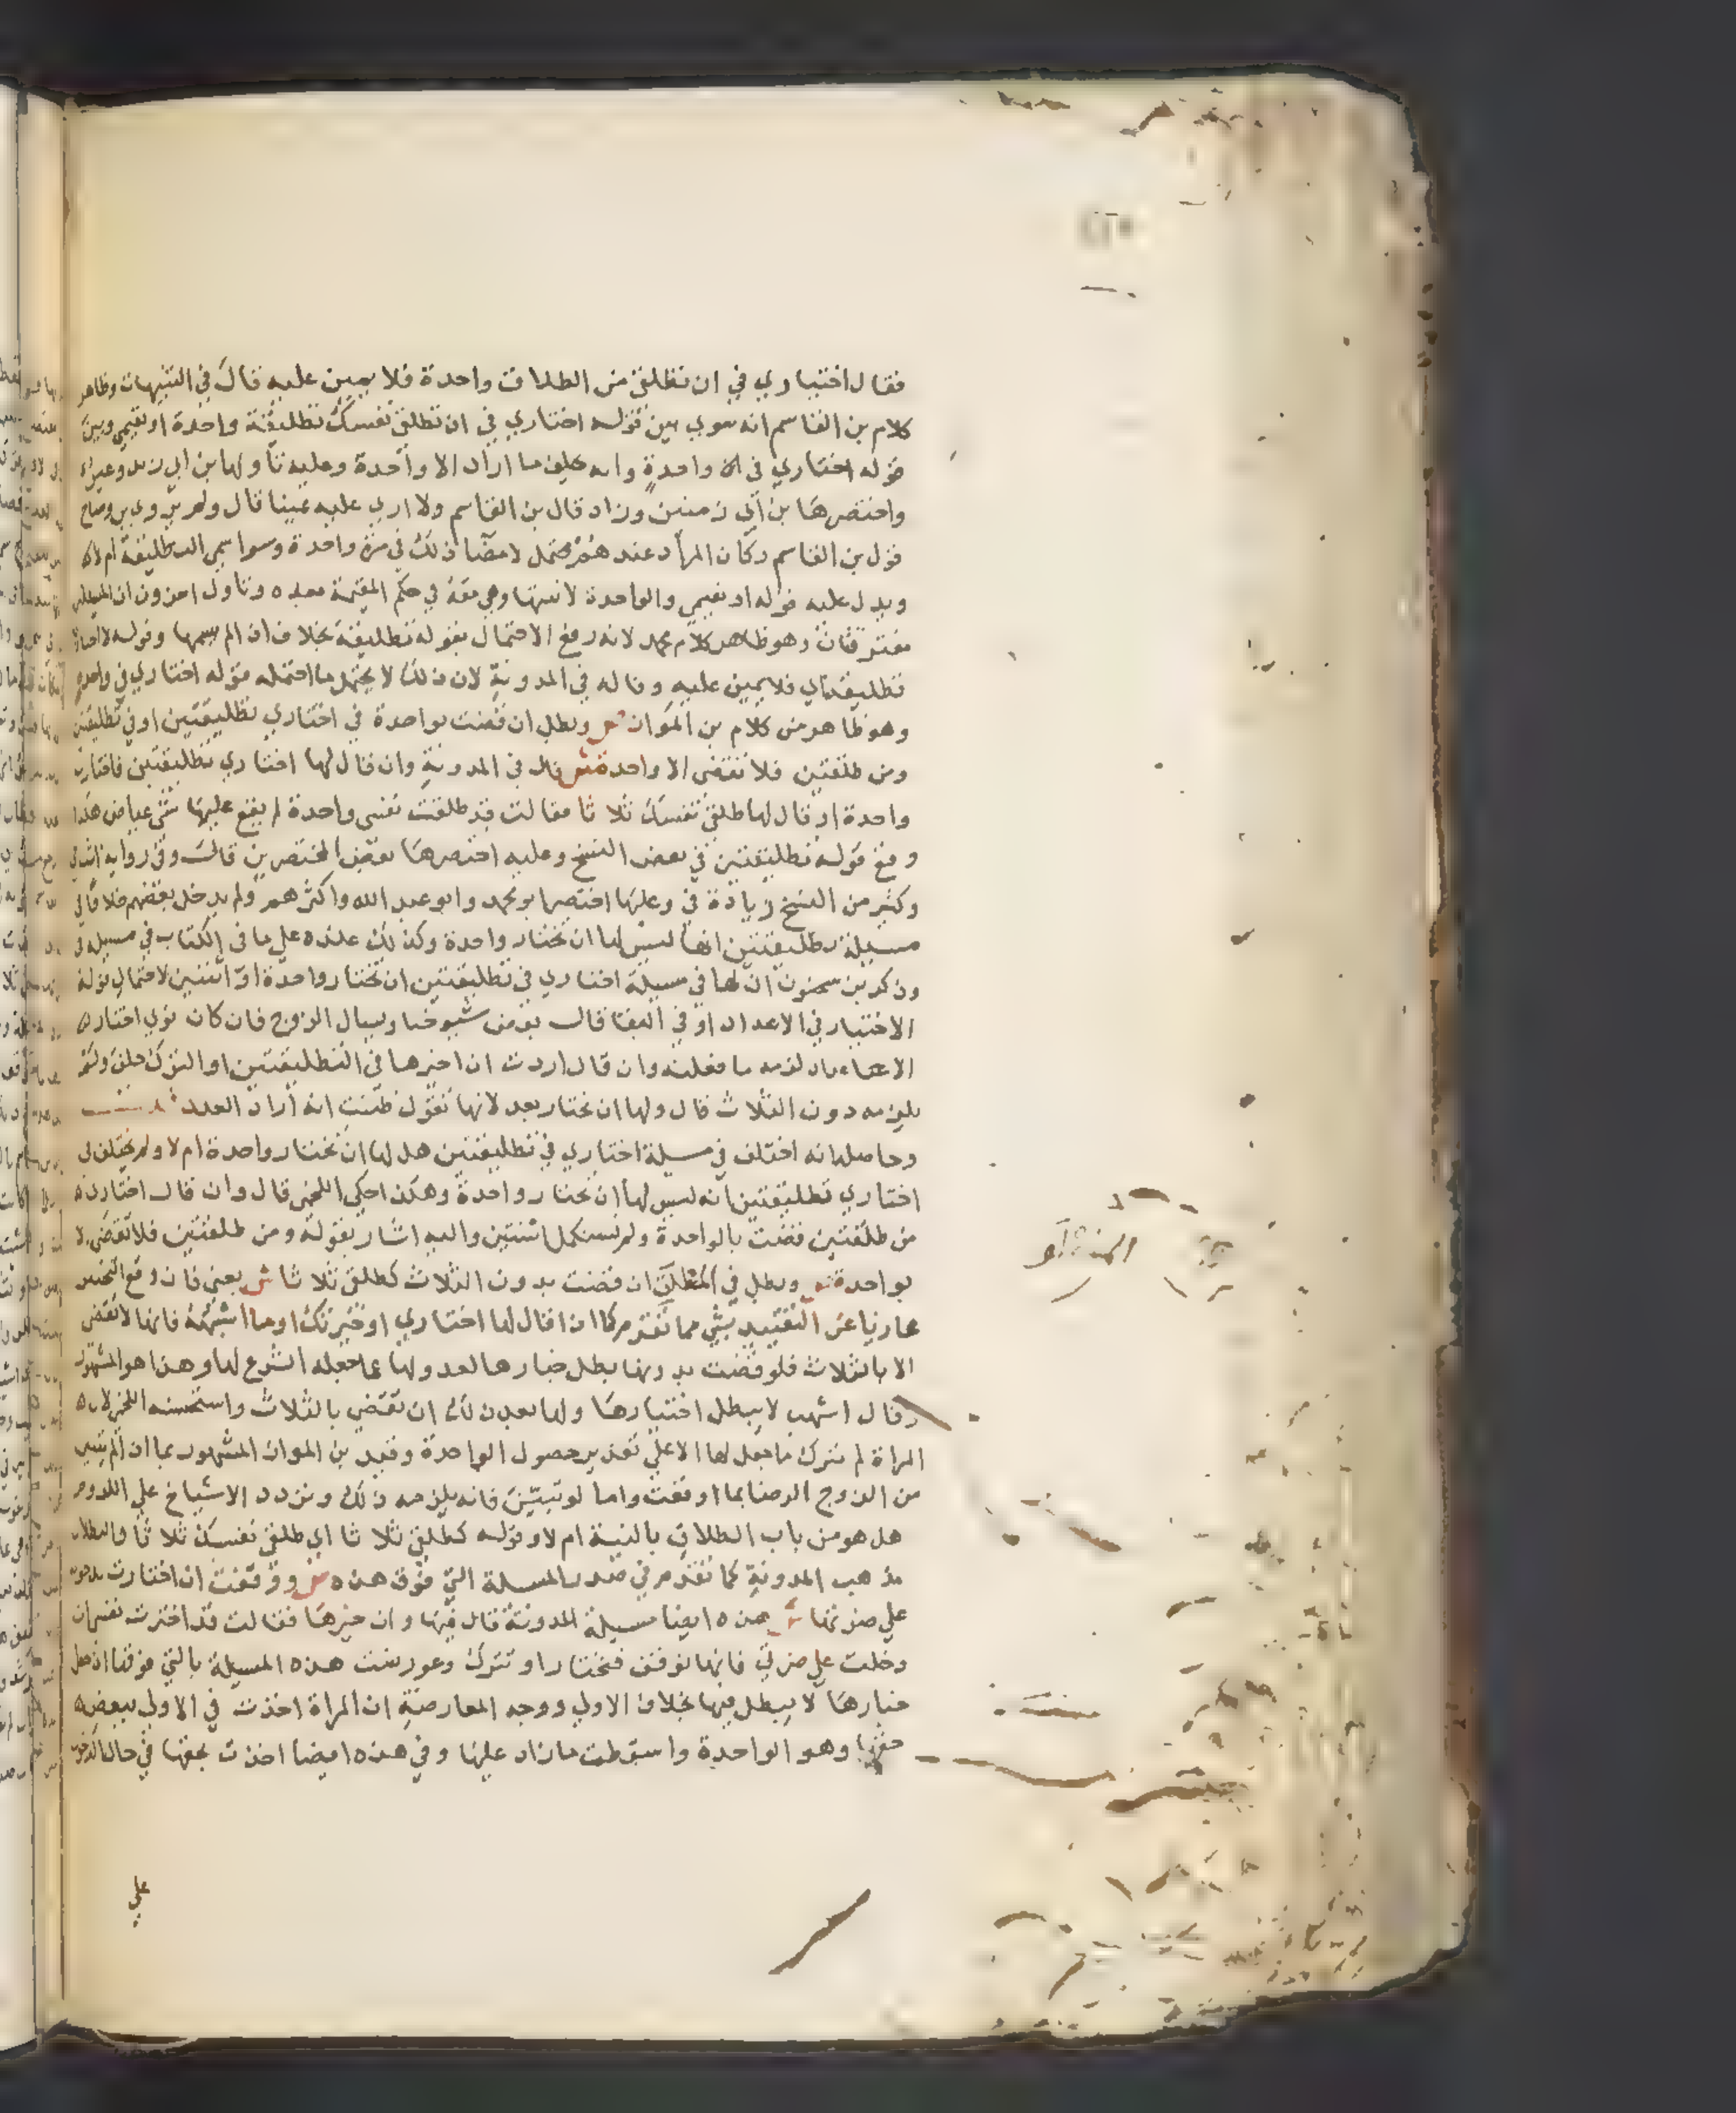 فقال اختياري في ان تطلقي من الطلاق واحدة فلا يمين عليه قال في التنبيهات وظاهر
كلام بن القاسم انه سوي بين قوله اختاري في ان تطلقي نفسك تطليقة واحدة او تقيمي وبين
قوله اختاري في واحدة وانه يحلف ما اراد الا واحدة وعليه تاولها بن ابي زيد وغيره
واختصرها بن ابي زمنين وزاد قال بن القاسم ولا اري عليه يمينا قال ولم يروي بن وضاح
قول بن القاسم وكان المراد عندهم محتمل لامضا ذلك في مرة واحدة وسوا سمي التطليقة ام لا
ويدل عليه قوله او تقيمي والواحدة لا تبينها وهي معه في حكم المقيمة بعده وتاول اخرون ان
مفترقان وهو ظاهر كلام محمد لانه رفع الاحتمال بقوله تطليقة بخلاف اذا لم يسمها وقوله
تطليقة اي فلا يمين عليه وقاله في المدونة لان ذلك لا يحتمل ما احتمله قوله اختاري في واحدة
وهو ظاهر من كلام بن المواز ص وبطل ان قضت بواحدة في اختاري تطليقتين او في تطليقتين
ومن طلقتين فلا تقضي الا واحدة ش قال في المدونة وان قال لها اختاري تطليقتين فاختارت
واحدة او قال لها طلقي نفسك ثلاثا فقالت قد طلقت نفسي واحدة لم يقع عليها شي عياض هكذا
وقع قوله تطليقتين في بعض النسخ وعليه اختصرها بعض المختصرين قال وفي رواية
وكثير من النسخ زيادة في وعليها اختصر ابو محمد وابو عبد الله واكثرهم ولم يدخل بعضهم خلافا في
مسيلة تطليقتين انها ليس لها ان تختار واحدة وكذلك عنده علي ما في الكتاب في مسيلة في
وذكر بن سحنون ان لها في مسيلة اختاري في تطليقتين ان تختار واحدة او اثنتين لاحتمال قوله
الاختيار في الاعداد او في البقا قال بعض شيوخنا ويسال الزوج فان كان نوي اختاري
الاعداد لزمه ما فعلته وان قال اردت ان اخيرها في التطليقتين او الترك حلف ولم
يلزمه دون الثلاث قال ولها ان تختار بعد لانها تقول ظننت انه اراد العدد
وحاصله انه اختلف في مسيلة اختاري في تطليقتين هل لها ان تختار واحدة ام لا ولم يختلف في
اختاري تطليقتين انه ليس لها ان تختار واحدة وهكذا حكي اللخمي قال وان قال اختاري
من طلقتين قضت بالواحدة ولم تستكمل اثنتين واليه اشار بقوله ومن طلقتين فلا تقضي الا
بواحدة ص وبطل في المطلق ان قضت بدون الثلاث كطلقي ثلاثا ش يعني فان وقع التخيير
عاريا عن التقييد بشي مما تقدم كما اذا قال لها اختاري او خيرتك او ما اشبهه فانها لا تقضي
الا بالثلاث فلو قضت بدونها بطل خيارها لعدولها عما جعله الشرع لها وهذا هو المشهور
وقال اشهب لا يبطل اختيارها ولها بعد ذلك ان تقضي بالثلاث واستحسنه اللخمي لان
المراة لم تترك ما جعل لها الا علي تقدير حصول الواحدة وقيد بن المواز المشهور بما اذا لم يتبين
من الزوج الرضا بما اوقعت واما لو تبين فانه يلزمه ذلك وتردد الاشياخ علي اللزوم
هل هو من باب الطلاق بالنية ام لا وقوله كطلقي ثلاثا اي طلقي نفسك ثلاثا والبطلان
مذهب المدونة كما تقدم في صدر المسلة التي فوق هذه ص ووقفت ان اختارت بدخوله
علي ضرتها ش هذه ايضا مسيلة المدونة قال فيها وان خيرها فقالت قد اخترت نفسي ان
دخلت علي ضرتي فانها توقف فتختار او تترك وعورضت هذه المسيلة بالتي فوقها اذ جعل
خيارها لا يبطل فيها بخلاف الاولي ووجه المعارضة ان المراة اخذت في الاولي ببعض
حقها وهو الواحدة واسقطت ما زاد عليها وفي هذه ايضا اخذت بحقها في حال الدخول
علي